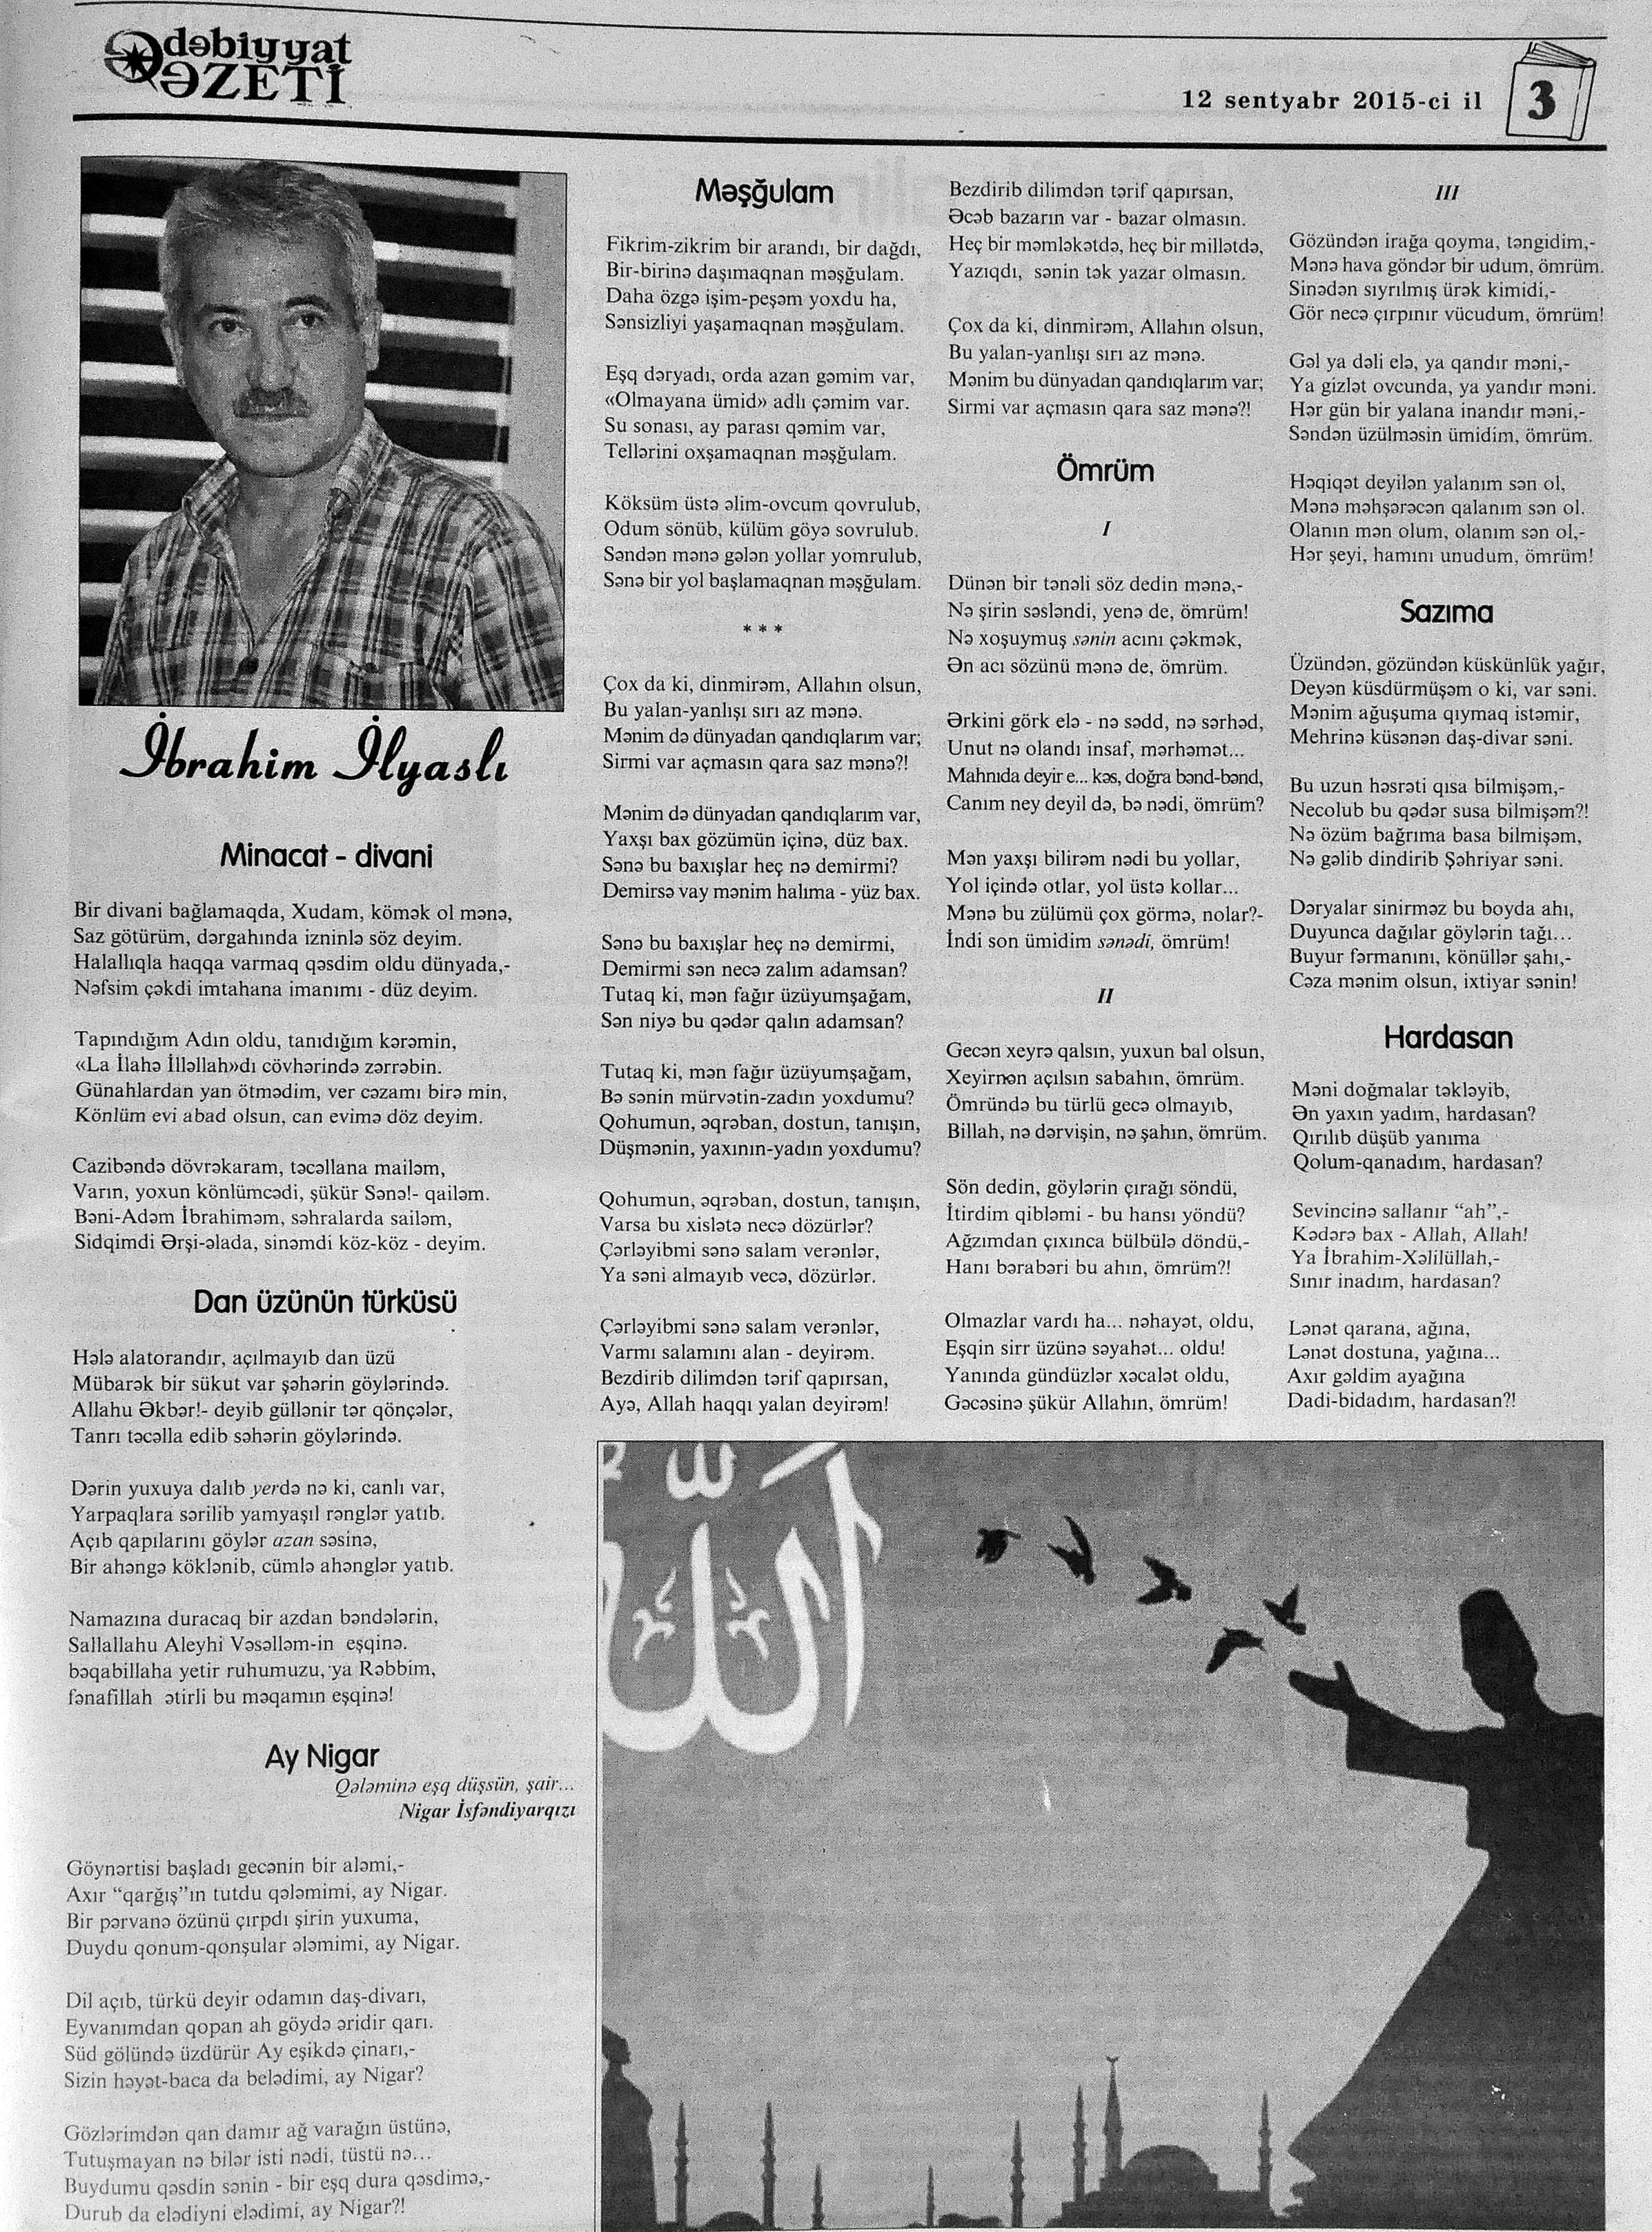 Ədəbiyyat
QƏZETİ
12 sentyabr 2015-ci il
3
İbrahim İlyaslı
Minacat - divani
Bir divani bağlamaqda, Xudam, kömək ol mənə,
Saz götürüm, dərgahında izninlə söz deyim.
Halallıqla haqqa varmaq qəsdim oldu dünyada,-
Nəfsim çəkdi imtahana imanımı - düz deyim.
Tapındığım Adın oldu, tanıdığım kərəmin,
«La İlahə İlləllah»dı cövhərində zərrəbin.
Günahlardan yan ötmədim, ver cəzamı birə min,
Könlüm evi abad olsun, can evimə döz deyim.
Cazibəndə dövrəkaram, təcəllana mailəm,
Varın, yoxun könlümcədi, şükür Sənə!- qailəm.
Bəni-Adəm İbrahiməm, səhralarda sailəm,
Sidqimdi Ərşi-əlada, sinəmdi köz-köz - deyim.
Dan üzünün türküsü
Hələ alatorandır, açılmayıb dan üzü
Mübarək bir sükut var şəhərin göylərində.
Allahu Əkbər!- deyib güllənir tər qönçələr,
Tanrı təcəlla edib səhərin göylərində.
Dərin yuxuya dalıb yerdə nə ki, canlı var,
Yarpaqlara sərilib yamyaşıl rənglər yatıb.
Açıb qapılarını göylər azan səsinə,
Bir ahəngə köklənib, cümlə ahənglər yatıb.
Namazına duracaq bir azdan bəndələrin,
Sallallahu Aleyhi Vəsəlləm-in eşqinə.
bəqabillaha yetir ruhumuzu, ya Rəbbim,
fənafillah ətirli bu məqamın eşqinə!
Ay Nigar
Qələminə eşq düşsün, şair...
Nigar İsfəndiyarqızı
Göynərtisi başladı gecənin bir aləmi,-
Axır “qarğış”ın tutdu qələmimi, ay Nigar.
Bir pərvanə özünü çırpdı şirin yuxuma,
Duydu qonum-qonşular ələmimi, ay Nigar.
Dil açıb, türkü deyir odamın daş-divarı,
Eyvanımdan qopan ah göydə əridir qarı.
Süd gölündə üzdürür Ay eşikdə çinarı,-
Sizin həyət-baca da belədimi, ay Nigar?
Gözlərimdən qan damır ağ varağın üstünə,
Tutuşmayan nə bilər isti nədi, tüstü nə...
Buydumu qəsdin sənin - bir eşq dura qəsdimə,-
Durub da elədiyni elədimi, ay Nigar?!
Məşğulam
Fikrim-zikrim bir arandı, bir dağdı,
Bir-birinə daşımaqnan məşğulam.
Daha özgə işim-peşəm yoxdu ha,
Sənsizliyi yaşamaqnan məşğulam.
Eşq dəryadı, orda azan gəmim var,
«Olmayana ümid» adlı çəmim var.
Su sonası, ay parası qəmim var,
Tellərini oxşamaqnan məşğulam.
Köksüm üstə əlim-ovcum qovrulub,
Odum sönüb, külüm göyə sovrulub.
Səndən mənə gələn yollar yomrulub,
Sənə bir yol başlamaqnan məşğulam.
* * *
Çox da ki, dinmirəm, Allahın olsun,
Bu yalan-yanlışı sırı az mənə.
Mənim də dünyadan qandıqlarım var;
Sirmi var açmasın qara saz mənə?!
Mənim də dünyadan qandıqlarım var,
Yaxşı bax gözümün içinə, düz bax.
Sənə bu baxışlar heç nə demirmi?
Demirsə vay mənim halıma - yüz bax.
Sənə bu baxışlar heç nə demirmi,
Demirmi sən necə zalım adamsan?
Tutaq ki, mən fağır üzüyumşağam,
Sən niyə bu qədər qalın adamsan?
Tutaq ki, mən fağır üzüyumşağam,
Bə sənin mürvətin-zadın yoxdumu?
Qohumun, əqrəban, dostun, tanışın,
Düşmənin, yaxının-yadın yoxdumu?
Qohumun, əqrəban, dostun, tanışın,
Varsa bu xislətə necə dözürlər?
Çərləyibmi sənə salam verənlər,
Ya səni almayıb vecə, dözürlər.
Çərləyibmi sənə salam verənlər,
Varmı salamını alan - deyirəm.
Bezdirib dilimdən tərif qapırsan,
Ayə, Allah haqqı yalan deyirəm!
Bezdirib dilimdən tərif qapırsan,
Əcəb bazarın var - bazar olmasın.
Heç bir məmləkətdə, heç bir millətdə,
Yazıqdı, sənin tək yazar olmasın.
Çox da ki, dinmirəm, Allahın olsun,
Bu yalan-yanlışı sırı az mənə.
Mənim bu dünyadan qandıqlarım var;
Sirmi var açmasın qara saz mənə?!
Ömrüm
I
Dünən bir tənəli söz dedin mənə,-
Nə şirin səsləndi, yenə de, ömrüm!
Nə xoşuymuş sənin acını çəkmək,
Ən acı sözünü mənə de, ömrüm.
Ərkini görk elə - nə sədd, nə sərhəd,
Unut nə olandı insaf, mərhəmət...
Mahnıda deyir e... kəs, doğra bənd-bənd,
Canım ney deyil də, bə nədi, ömrüm?
Mən yaxşı bilirəm nədi bu yollar,
Yol içində otlar, yol üstə kollar...
Mənə bu zülümü çox görmə, nolar?-
İndi son ümidim sənədi, ömrüm!
II
Gecən xeyrə qalsın, yuxun bal olsun,
Xeyirnən açılsın sabahın, ömrüm.
Ömründə bu türlü gecə olmayıb,
Billah, nə dərvişin, nə şahın, ömrüm.
Sön dedin, göylərin çırağı söndü,
İtirdim qibləmi - bu hansı yöndü?
Ağzımdan çıxınca bülbülə döndü,-
Hanı bərabəri bu ahın, ömrüm?!
Olmazlar vardı ha... nəhayət, oldu,
Eşqin sirr üzünə səyahət... oldu!
Yanında gündüzlər xəcalət oldu,
Gecəsinə şükür Allahın, ömrüm!
III
Gözündən irağa qoyma, təngidim,-
Mənə hava göndər bir udum, ömrüm.
Sinədən sıyrılmış ürək kimidi,-
Gör necə çırpınır vücudum, ömrüm!
Gəl ya dəli elə, ya qandır məni,-
Ya gizlət ovcunda, ya yandır məni.
Hər gün bir yalana inandır məni,-
Səndən üzülməsin ümidim, ömrüm.
Həqiqət deyilən yalanım sən ol,
Mənə məhşərəcən qalanım sən ol.
Olanın mən olum, olanım sən ol,-
Hər şeyi, hamını unudum, ömrüm!
Sazıma
Üzündən, gözündən küskünlük yağır,
Deyən küsdürmüşəm o ki, var səni.
Mənim ağuşuma qıymaq istəmir,
Mehrinə küsənən daş-divar səni.
Bu uzun həsrəti qısa bilmişəm,-
Necolub bu qədər susa bilmişəm?!
Nə özüm bağrıma basa bilmişəm,
Nə gəlib dindirib Şəhriyar səni.
Dəryalar sinirməz bu boyda ahı,
Duyunca dağılar göylərin tağı...
Buyur fərmanını, könüllər şahı,-
Cəza mənim olsun, ixtiyar sənin!
Hardasan
Məni doğmalar təkləyib,
Ən yaxın yadım, hardasan?
Qırılıb düşüb yanıma
Qolum-qanadım, hardasan?
Sevincinə sallanır “ah”,-
Kədərə bax - Allah, Allah!
Ya İbrahim-Xəlilüllah,-
Sınır inadım, hardasan?
Lənət qarana, ağına,
Lənət dostuna, yağına...
Axır gəldim ayağına
Dadi-bidadım, hardasan?!
الله